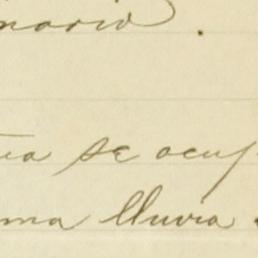 nario.
rea se ocup
ma lluvia